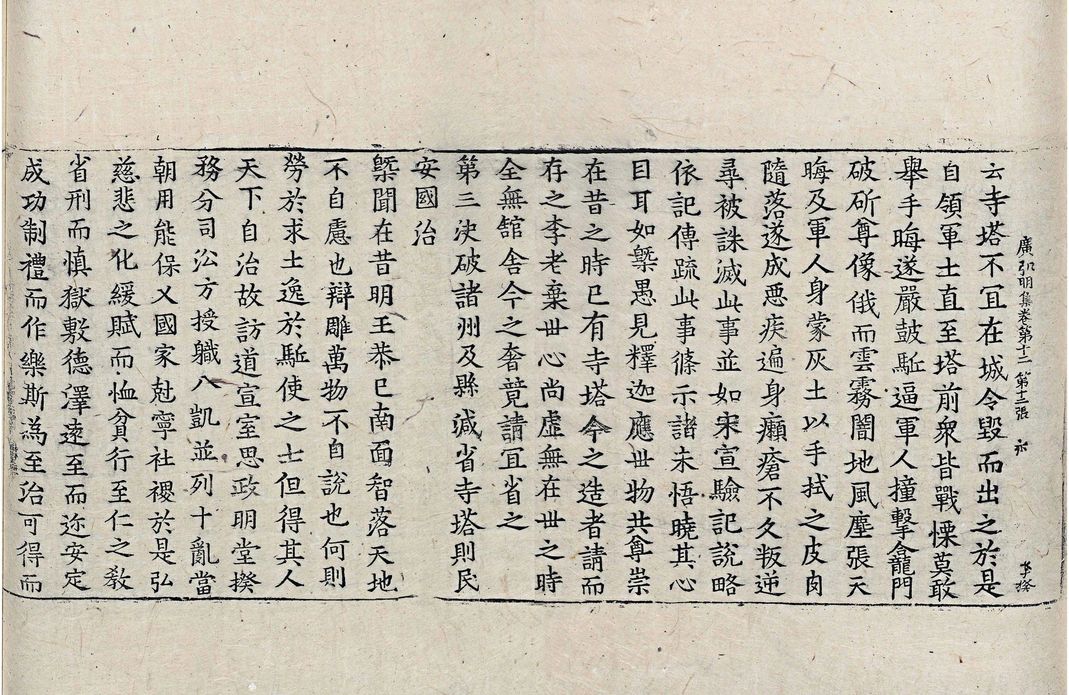 廣弘明集卷第十二 第十二張
云寺塔不冝在城令毀而出之於是
自領軍士直至塔前衆皆戰慄莫敢
舉手晦遂嚴鼓駈逼軍人撞擊龕門
破斫尊像俄而雲霧闇地風塵張天
晦及軍人身蒙灰土以手拭之皮肉
隨落遂成惡疾遍身癩瘡不久叛逆
尋被誅滅此事並如宋宣驗記說略
依記傳疏此事條示諸未悟曉其心
目耳如槩愚見釋迦應世物共尊崇
在昔之時已有寺塔今之造者請而
存之李老棄世心尚虛無在世之時
全無舘舍今之奢竞請冝省之
第三決破諸州及縣減省寺塔則民
安國治
槩聞在昔明王恭已南面智落天地
不自慮也辯雕萬物不自說也何則
勞於求士逸於駈使之士但得其人
天下自治故訪道宣室思政明堂揆
務分司㳂方授軄八凱並列十亂當
朝用能保乂國家尅寧社稷於是弘
慈悲之化緩賦而恤貧行至仁之教
省刑而慎獄敷德澤遠至而迩安定
成功制禮而作樂斯為至治可得而